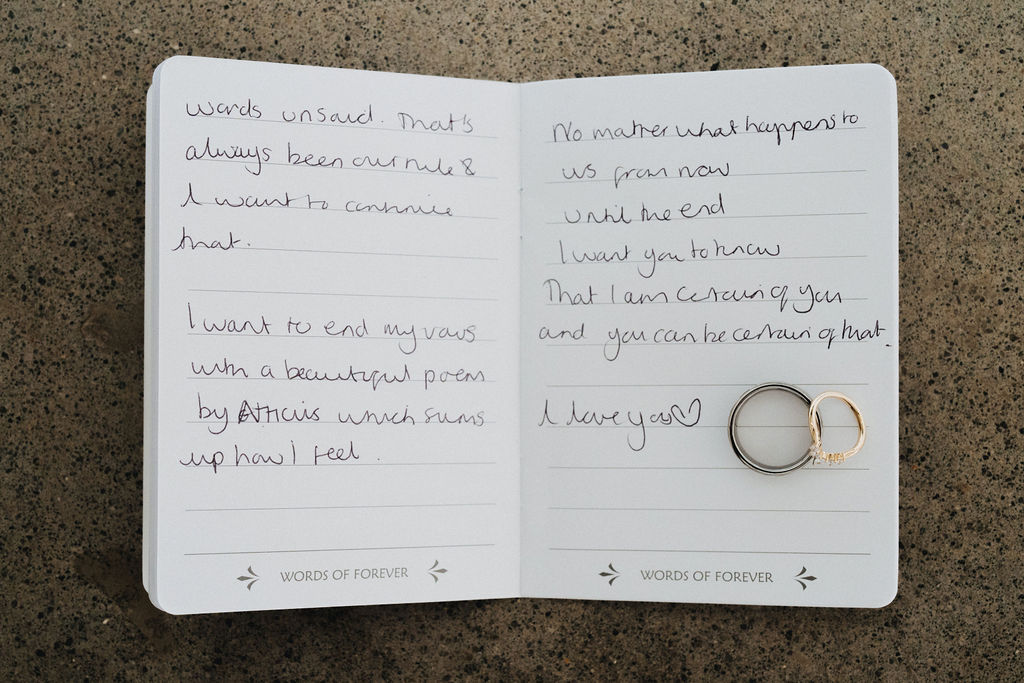 words unsaid. That's
always been our rule &
I want to continue
that.
I want to end my vows
with a beautiful poem
by Atticus which sums
up how I feel.
WORDS OF FOREVER
No matter what happens to
us from now
until the end
I want you to know
That I am certain of you
and you can be certain of that.
I love you♡
WORDS OF FOREVER